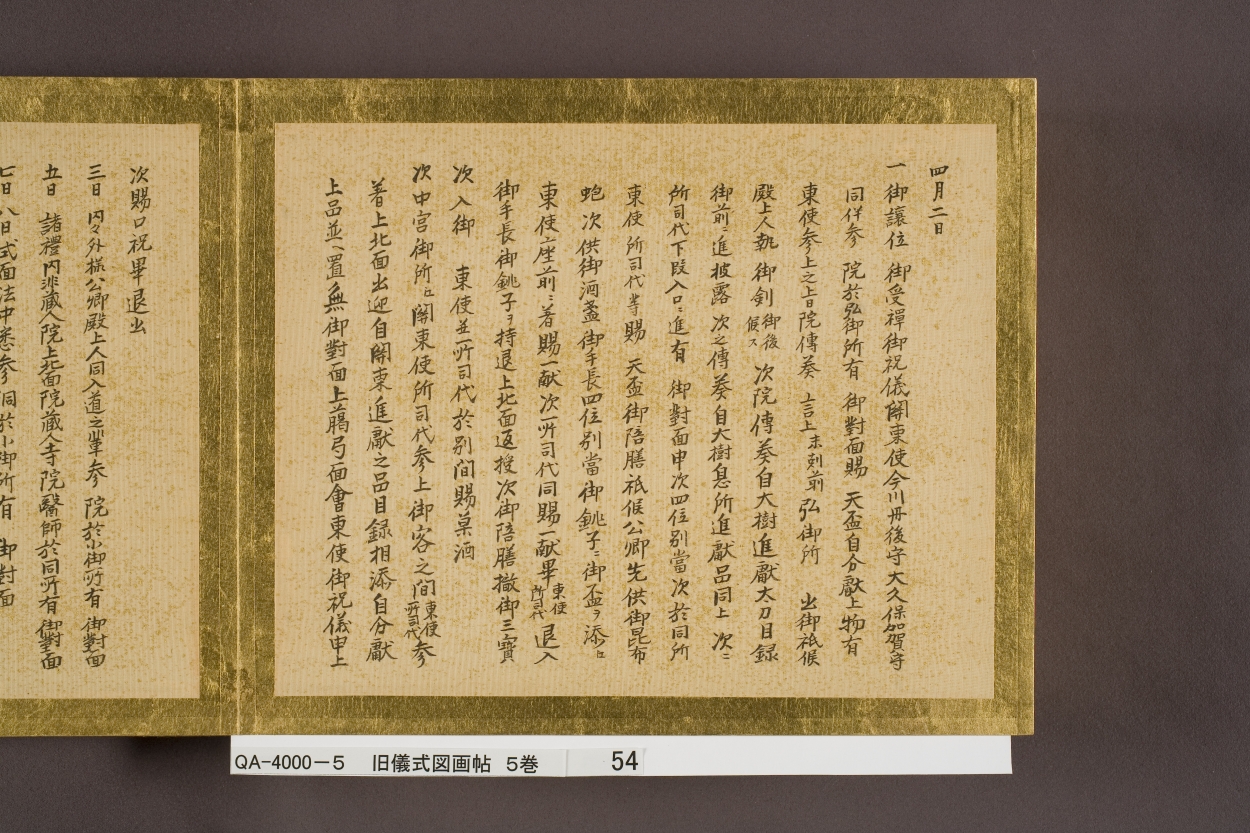 四月二日
一御讓位 御受禪御祝儀關東使今川丹後守大久保加賀守
同伴参 院於弘御所有 御對面賜 天盃自分獻上物有
東使参上之上日院傳奏 言上未刻前弘御所 出御祇候
殿上人執 御剣御後候ス 次院傳奏自大樹進獻太刀目録
御前ニ進披露 次之傳奏自大樹息所進獻品同上 次ニ
所司代下段入口ニ進有 御對面申次四位別當次於同所
東使 所司代等賜 天盃御陪膳祇候公卿先供御昆布
蚫 次供御酒盞御手長四位別當御銚子ニ御盃ヲ添ヒ
東使座前ニ著賜一献次所司代同賜一献畢東使所司代退入
御手長御銚子ヲ持退上北面返授次御陪膳撤御三寶
次入御 東使並所司代於別間賜菓酒
次中宮御所ヒ關東使所司代参上御客之間東使所司代参
著上北面出迎自關東進獻之品目録相添自分獻
上品並置無御對面上﨟弓面會東使御祝儀申上
次賜口祝畢退出
三日 内々外様公卿殿上人同入道之輩参 院於小御所有 御對面
五日 諸禮内非蔵人院上北面院蔵人寺院醫師於同所有 御對面
七日八日式面法中悉参洞於小御所有 御對面
QA-4000-5 旧儀式図画帖 5巻 54